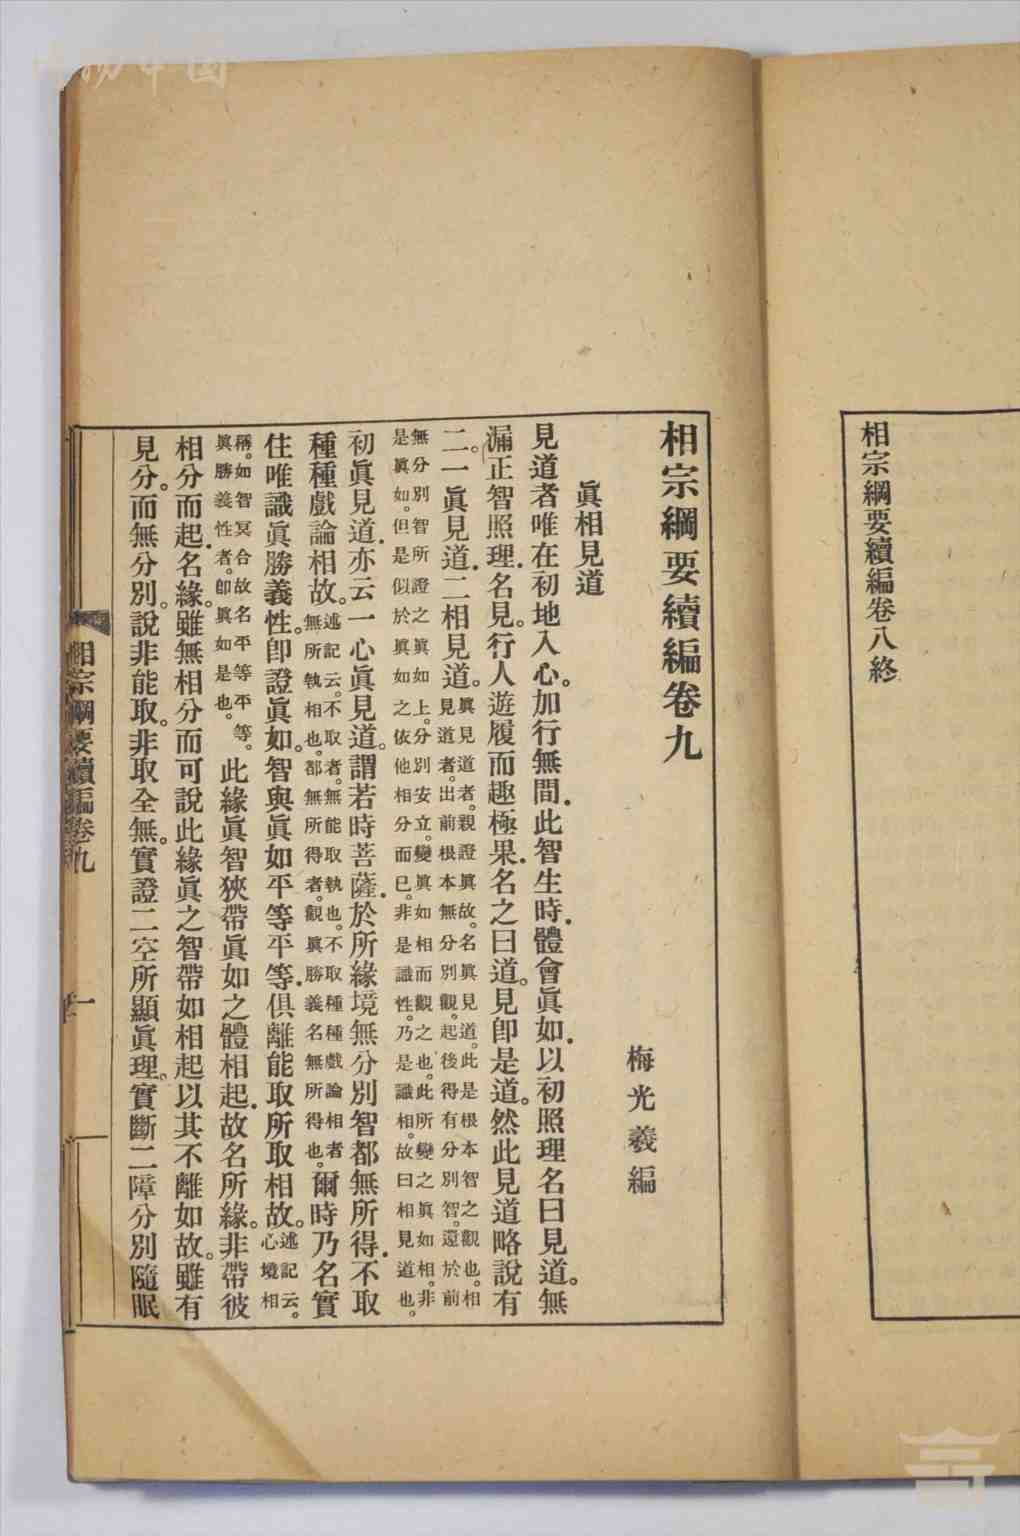 相宗綱要續編卷八終
相宗綱要續編卷九
梅光羲編
眞相見道
見道者唯在初地入心。加行無間．此智生時．體會眞如．以初照理名曰見道。無
漏正智照理．名見。行人遊履而趣極果．名之曰道。見卽是道。然此見道略說有
二。一眞見道．二相見道。眞見道者。親證眞故。名眞見道。此是根本智之觀也。相
見道者。出前根本無分別觀。起後得有分別智。還於前
無分別智所證之眞如上。分別安立。變眞如相而觀之也。此所變之眞如相。非
是眞如。但是似於眞如之依他相分而已。非是識性。乃是識相。故曰相見道也。
初眞見道．亦云一心眞見道。謂若時菩薩．於所緣境無分別智都無所得．不取
種種戲論相故。述記云。不取者。無能取執也。不取種種戲論相者
無所執相也。都無所得者。觀眞勝義名無所得也。爾時乃名實
住唯識眞勝義性。卽證眞如。智與眞如平等平等．俱離能取所取相故。述記云。
心境相
稱。如智冥合故名平等平等。
眞勝義性者。卽眞如是也。此緣眞智狹帶眞如之體相起．故名所緣。非帶彼
相分而起．名緣。雖無相分而可說此緣眞之智帶如相起以其不離如故。雖有
見分。而無分別。說非能取。非取全無。實證二空所顯眞理．實斷二障分別隨眠
相宗綱要續編卷九
一